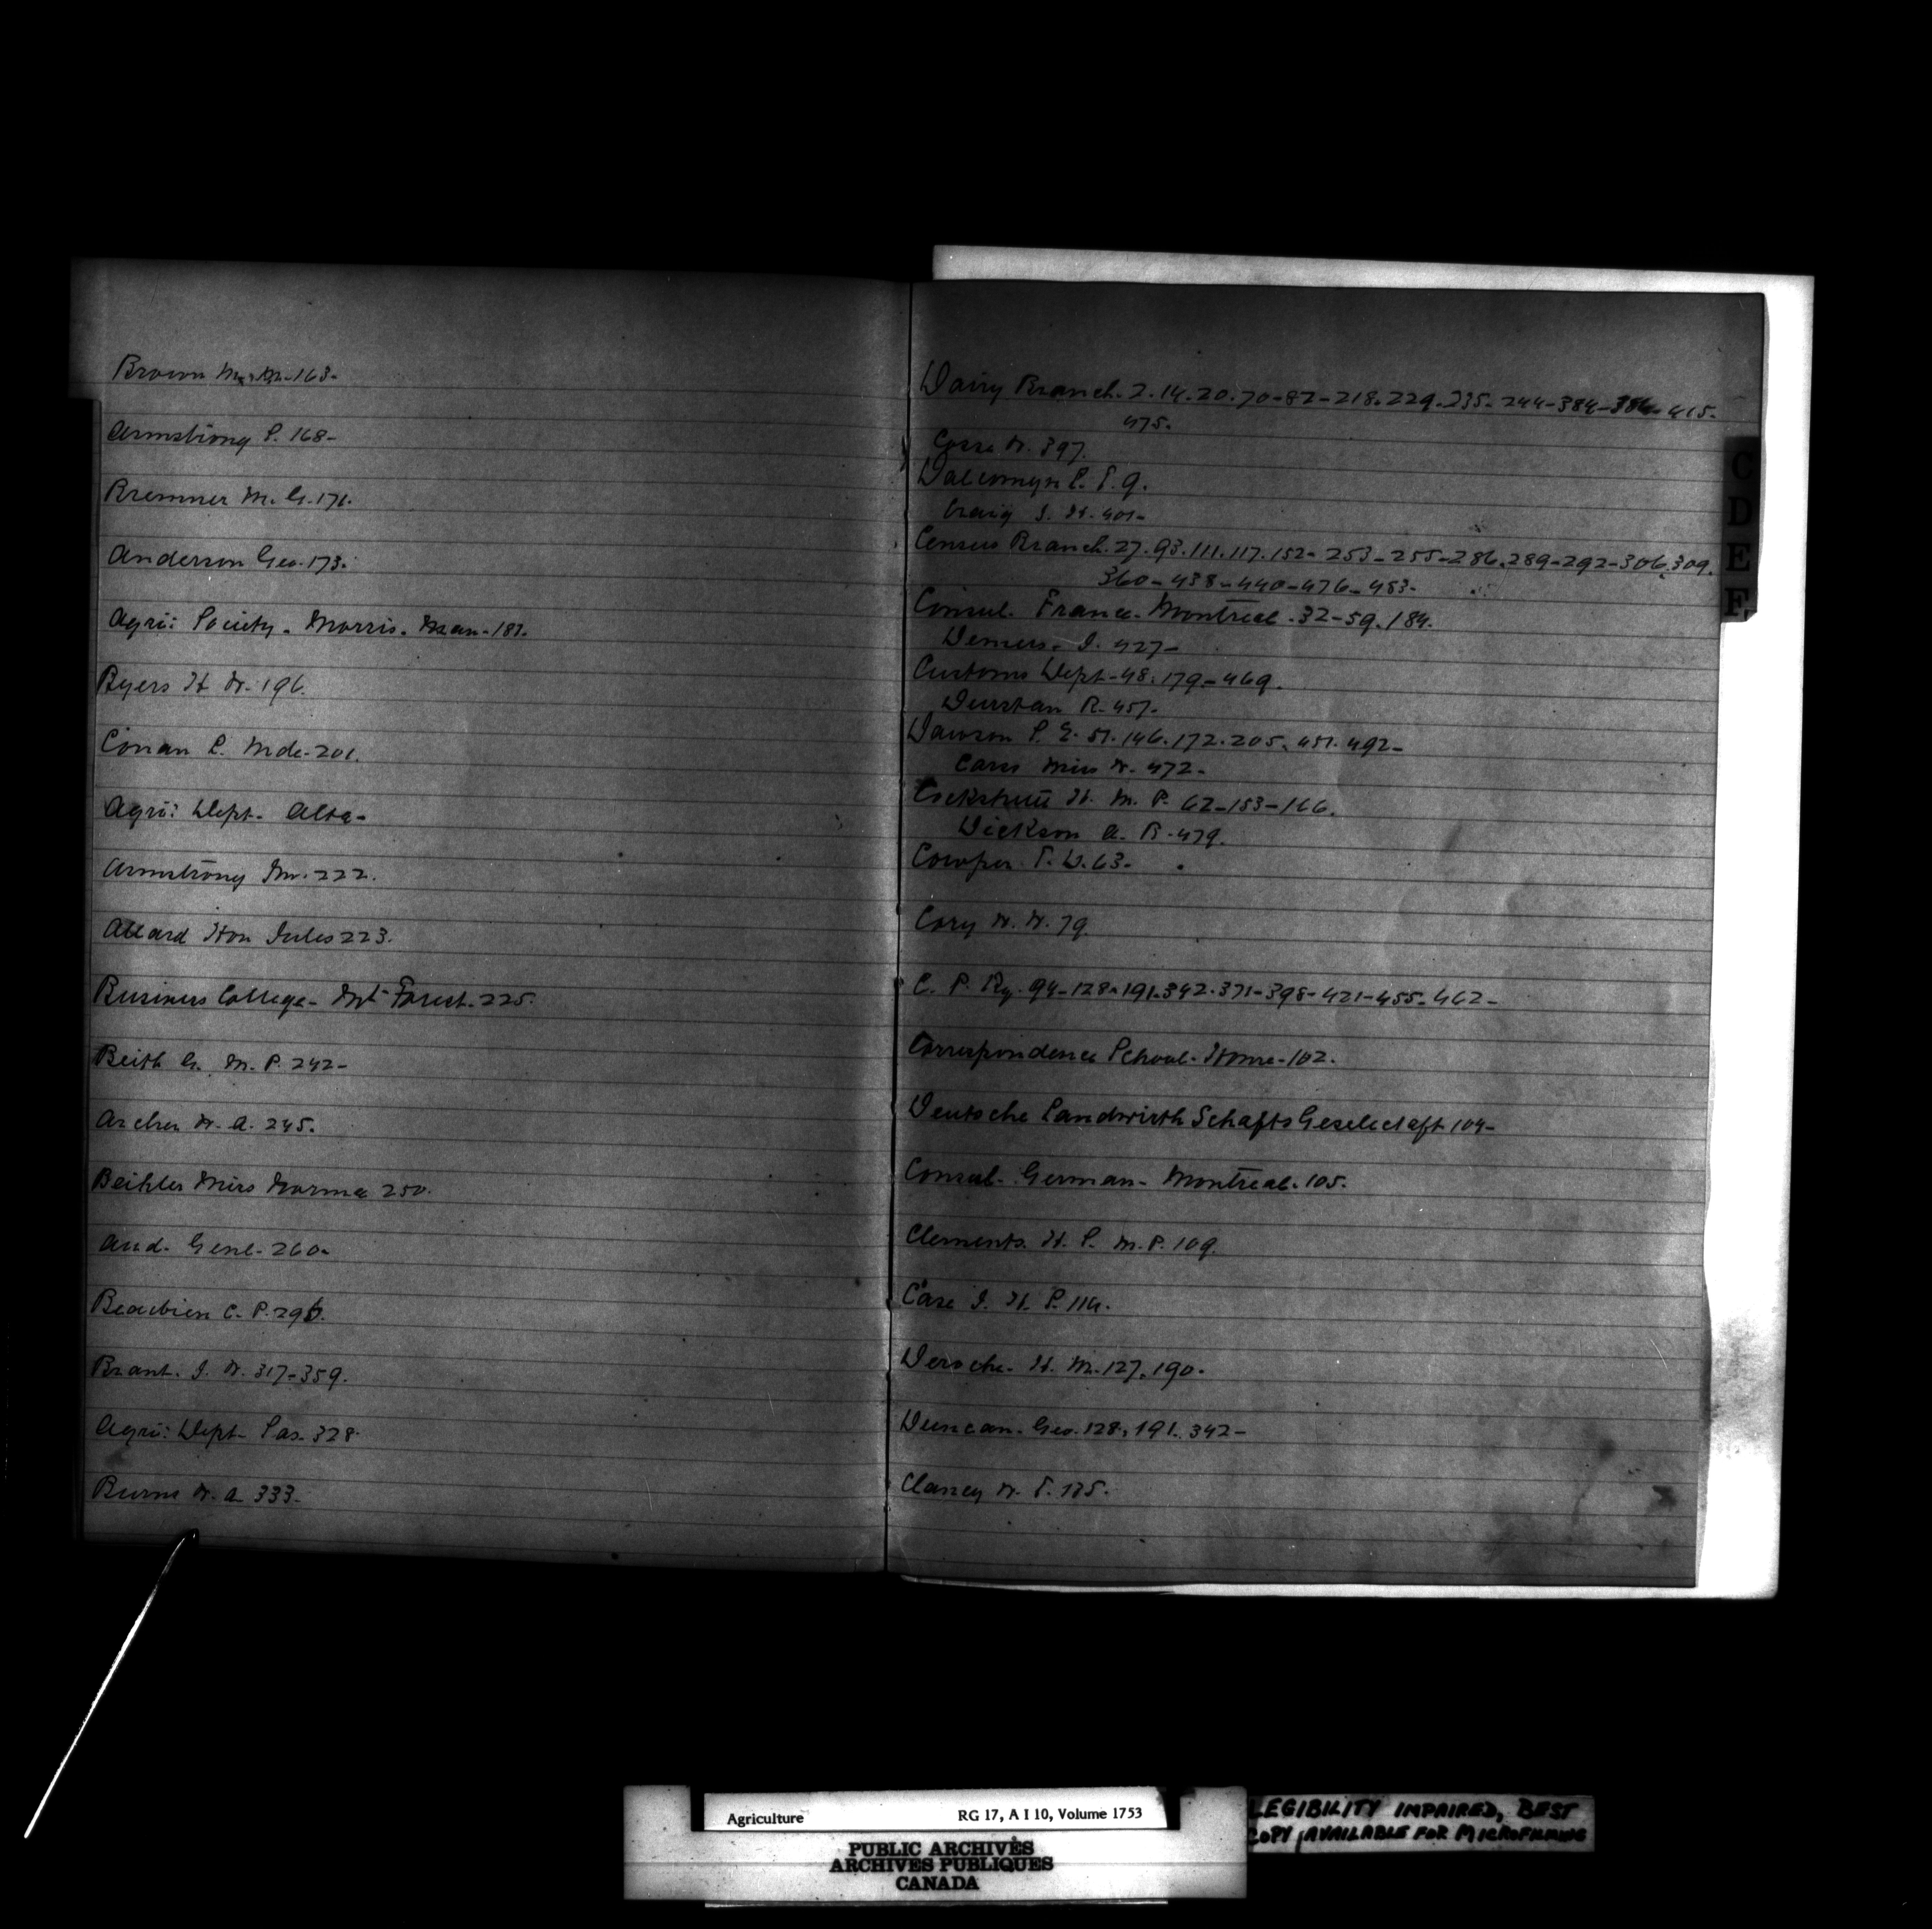 Brown M. M. 163-
Armstrong S. 168-
Bremner M. G. 171.
Anderson Geo. 173.
Agri: Society - Morris. Man - 187.
Byers H W. 196.
Conan C. Mde. 201.
Agri: Dept - Alta -
Armstrong Mr. 222.
Allard Hon Jules 223.
Business College - Mt Forest. 225.
Beith G. M. P. 242-
Archer W. A. 245.
Beihler Miss Norma 250.
Aud. Genl. 260-
Beaubien C. P. 296.
Brant. J. W. 317-359.
Agri: Dept - Sas. 328.
Burns W. A 333.
Dairy Branch. 2. 14. 20. 70-82-218. 229. 235. 244-384-386-415.
475.
W. 397.
Dalcomyn C. T. 9.
Craig J. H. 401-
Census Branch. 27. 93. 111. 117. 152-253-255-286. 289-292-306. 309.
360-438-440-476-483-
Consul. France - Montreal. 32-59. 184.
Demers. J. 427-
Customs Dept-48. 179-469.
Durstan R. 457-
Dawson S. E. 51. 146. 172. 205. 451. 492-
Carss Miss W. 472-
Cockshutt H. M. P. 62-153-166.
Dickson A. R. 479.
Cowper. T. D. 63-
Cory W. W. 79.
C. P. Ry. 94-128-191-342-371-398-421-455-462-
Correspondence School - Home - 102.
Deutsche Landwirth Schafts Geselectaft 104-
Consul - German - Montreal. 105.
Clements. H. S. M. P. 109.
Case J. H. P. 114.
Deroche. H. M. 127. 190-
Duncan. Geo. 128. 191. 342-
Clancy W. T. 135.
C
D
E
F
Agriculture RG 17, A I 10, Volume 1753
PUBLIC ARCHIVES
ARCHIVES PUBLIQUES
CANADA
LEGIBILITY IMPAIRED, BEST
COPY AVAILABLE FOR MICROFILMING